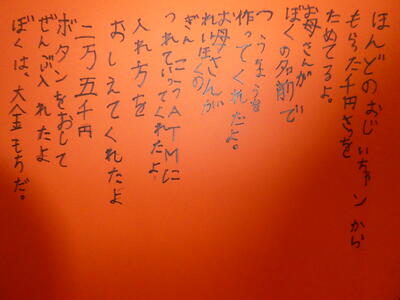 ほんどのおじいちャンから
もらった千円さつを
ためてるよ。
お母さんが
ぼくの名前で
つうちょうを
作ってくれたよ。
お母さんが
ぎん行のATMに
つれていってくれたよ
入れ方を
おしえてくれたよ
二万五千円
ボタンをおして
ぜんぶ入れたよ
ぼくは、大金もちだ。